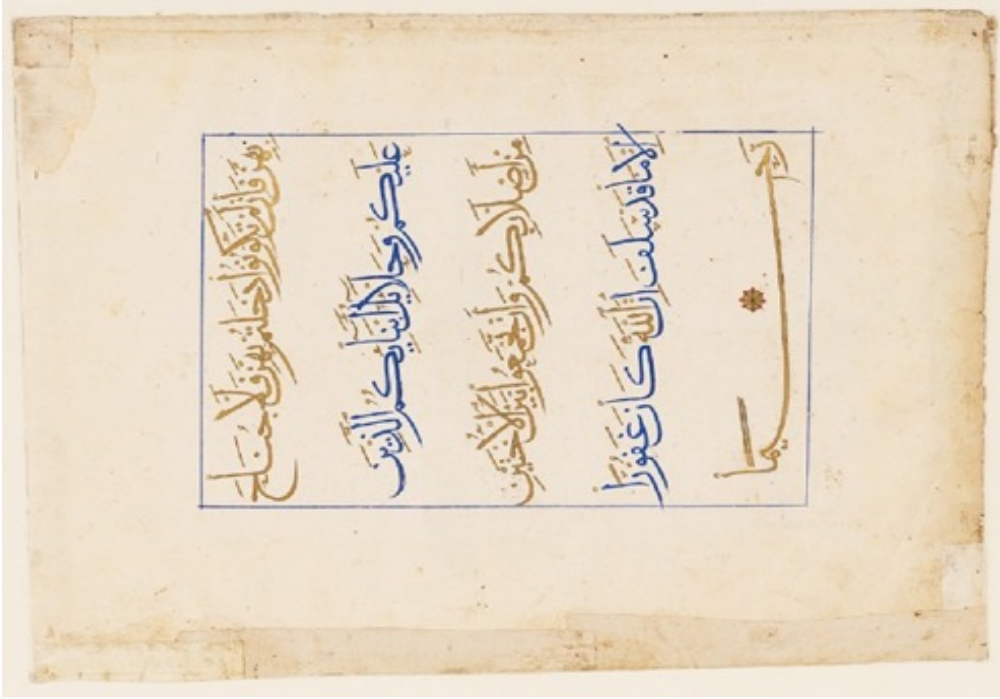 بهن فإن لم تكونوا دخلتم بهن فلا جناح
عليكم وحلائل أبنائكم الذين
من أصلابكم وأن تجمعوا بين الأختين
إلا ما قد سلف إن الله كان غفورا
رحيما